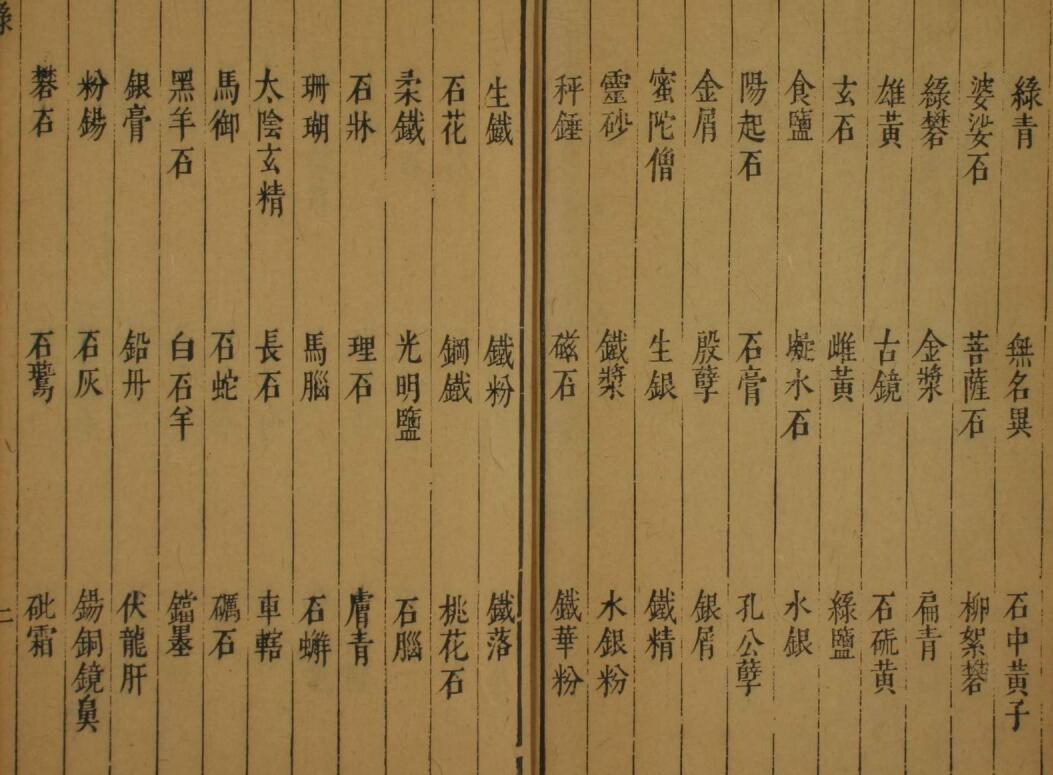 綠青 無名異 石中黃子
婆娑石 菩薩石 柳絮礬
綠礬 金漿 扁青
雄黃 古鏡 石硫黃
玄石 雌黃 綠鹽
食鹽 凝水石 水銀
陽起石 石膏 孔公孽
金屑 殷孽 銀屑
蜜陀僧 生銀 鐵精
靈砂 鐵漿 水銀粉
秤錘 磁石 鐵華粉
生鐵 鐵粉 鐵落
石花 鋼鐵 桃花石
柔鐵 光明鹽 石腦
石牀 理石 膚青
珊瑚 馬腦 石蟹
太陰玄精 長石 車轄
馬御 石蛇 礪石
黑羊石 白石羊 鐺墨
銀膏 鉛丹 伏龍肝
粉鍚 石灰 鍚銅鏡鼻
礬石 石鷰 砒霜
二